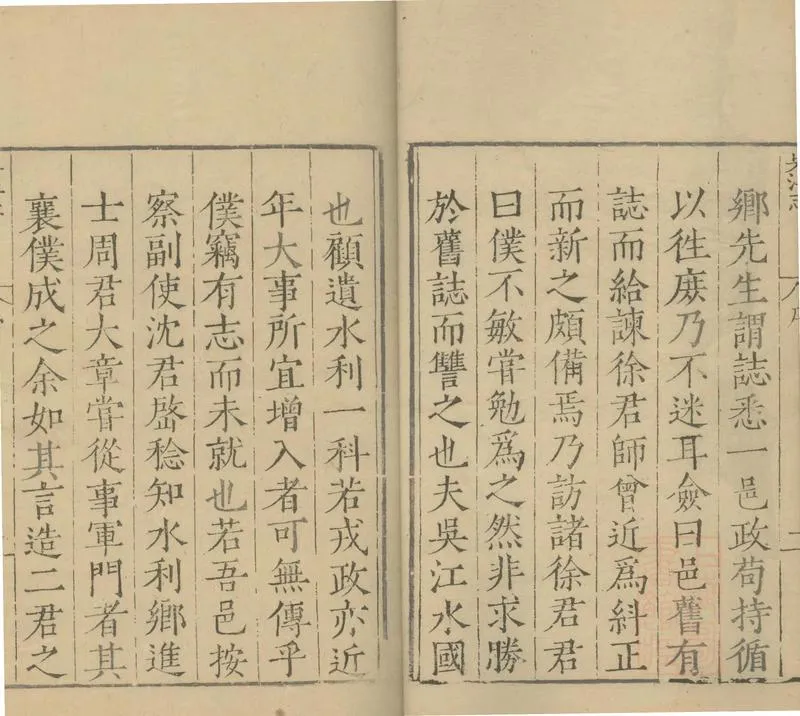 鄉先生謂誌悉一邑政茍持循
以徃庻乃不迷耳僉曰邑舊有
誌而給諫徐君師曾近爲糾正
而新之頗備焉乃訪諸徐君君
曰僕不敏嘗勉爲之然非求勝
於舊誌而讐之也夫吳江水國
也顧遺水利一科若戎政亦近
年大事所宜增入者可無傳乎
僕竊有志而未就也若吾邑按
察副使沈君𡹘稔知水利鄉進
士周君大章嘗從事軍門者其
襄僕成之余如其言造二君之